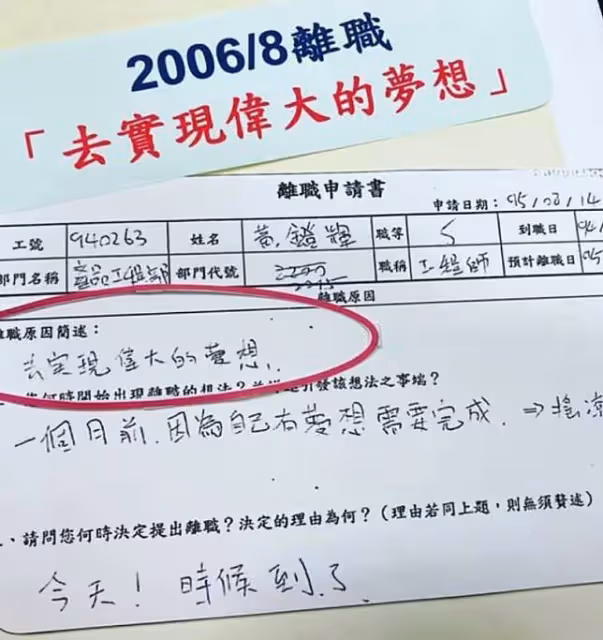 2006/8離職
「去實現偉大的夢想」
離職申請書
申請日期:95/08/14
工號 940263 姓名 黃鐙輝 職等 5 到職日 94/
部門名稱 產品工程部 部門代號 職稱 工程師 預計離職日 95
離職原因
離職原因簡述:
去实現偉大的夢想..
您何時開始出現離職的想法?並 引發該想法之事端?
一個月前.因為自己有夢想需要完成.⇒搖滾
、請問您何時決定提出離職?決定的理由為何?(理由若同上題,則無須贅述)
今天! 時候到了.